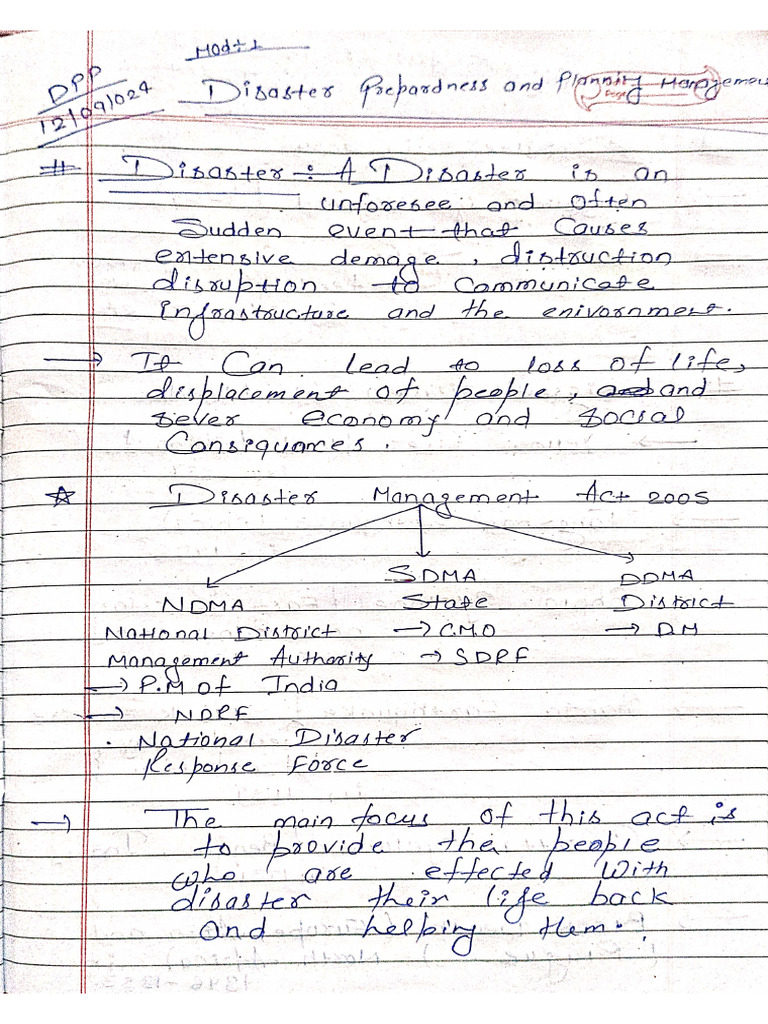 Mod:- 1
DPP
12/09/024
Disaster Prepardness and Planning Management
# Disaster :- A Disaster is an
unforesee and often
Sudden event that Causes
entensive demage , distruction
disruption to Communicate
Infrastructure and the enivornment.
→ It Can lead to loss of life,
displacement of people, and
sever economy and social
Consiquances.
☆ Disaster Management Act 2005
NDMA SDMA DDMA
State District
National District → C.M.O → D.M
Management Authority → SDRF
→ P.M of India
→ NDRF
. National Disaster
Response Force
→ The main focus of this act is
to provide the people
who are effected with
disaster their life back
and helping them.